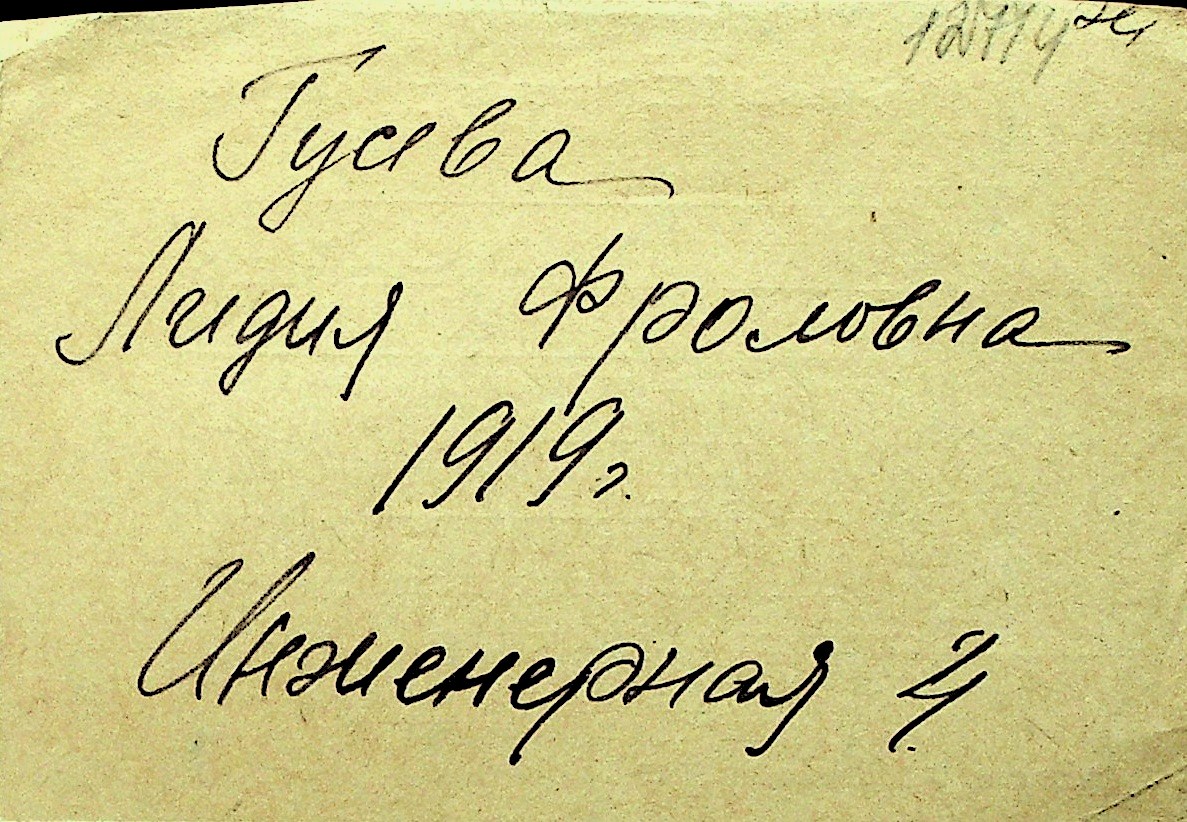 Гусева
Лидия Фроловна
1919г.
Инженерная 4